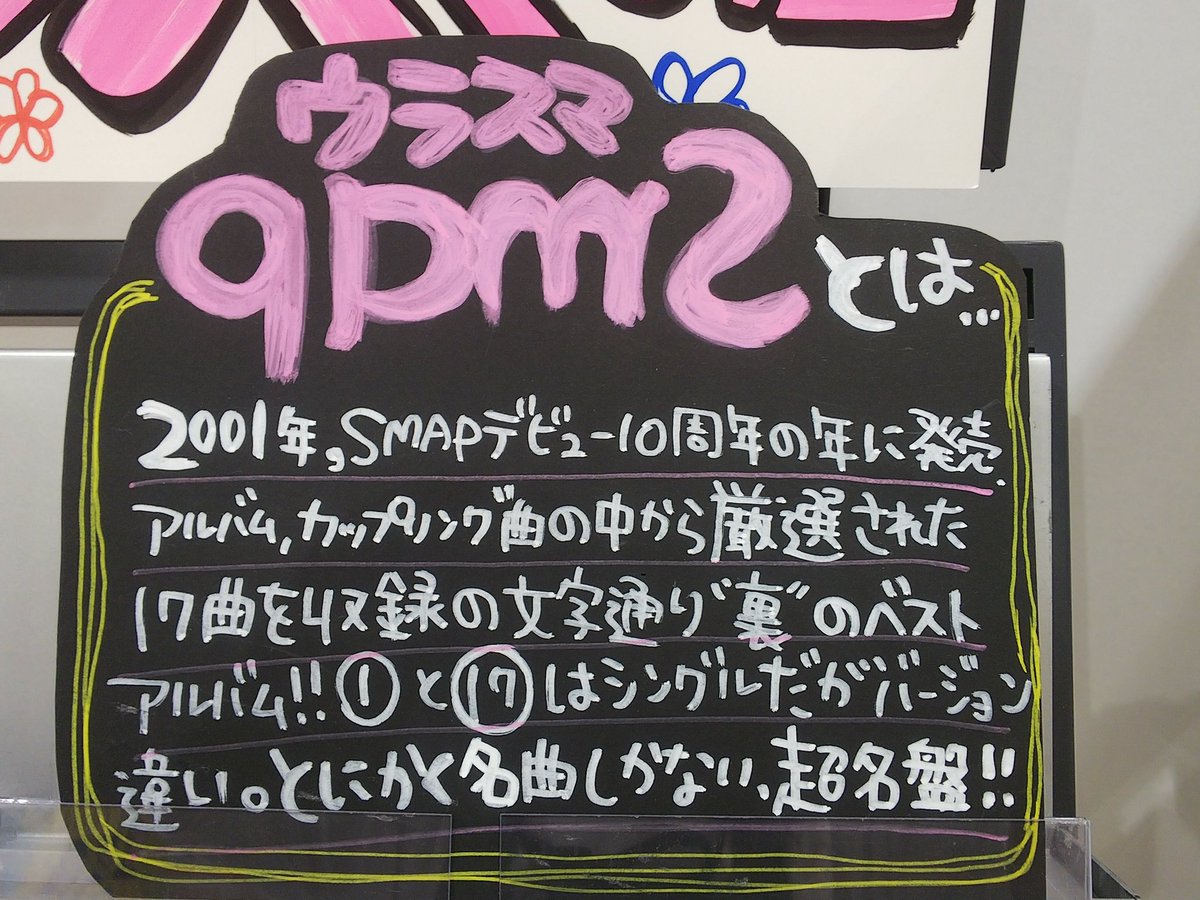 ウラスマ
qpms
とは...
2001年,SMAPデビュー10周年の年に発売.
アルバム,カップリング曲の中から厳選された
17曲を収録の文字通り"裏"のベスト
アルバム!!①と⑰はシングルだがバージョン
違い。とにかく名曲しかない、超名盤!!